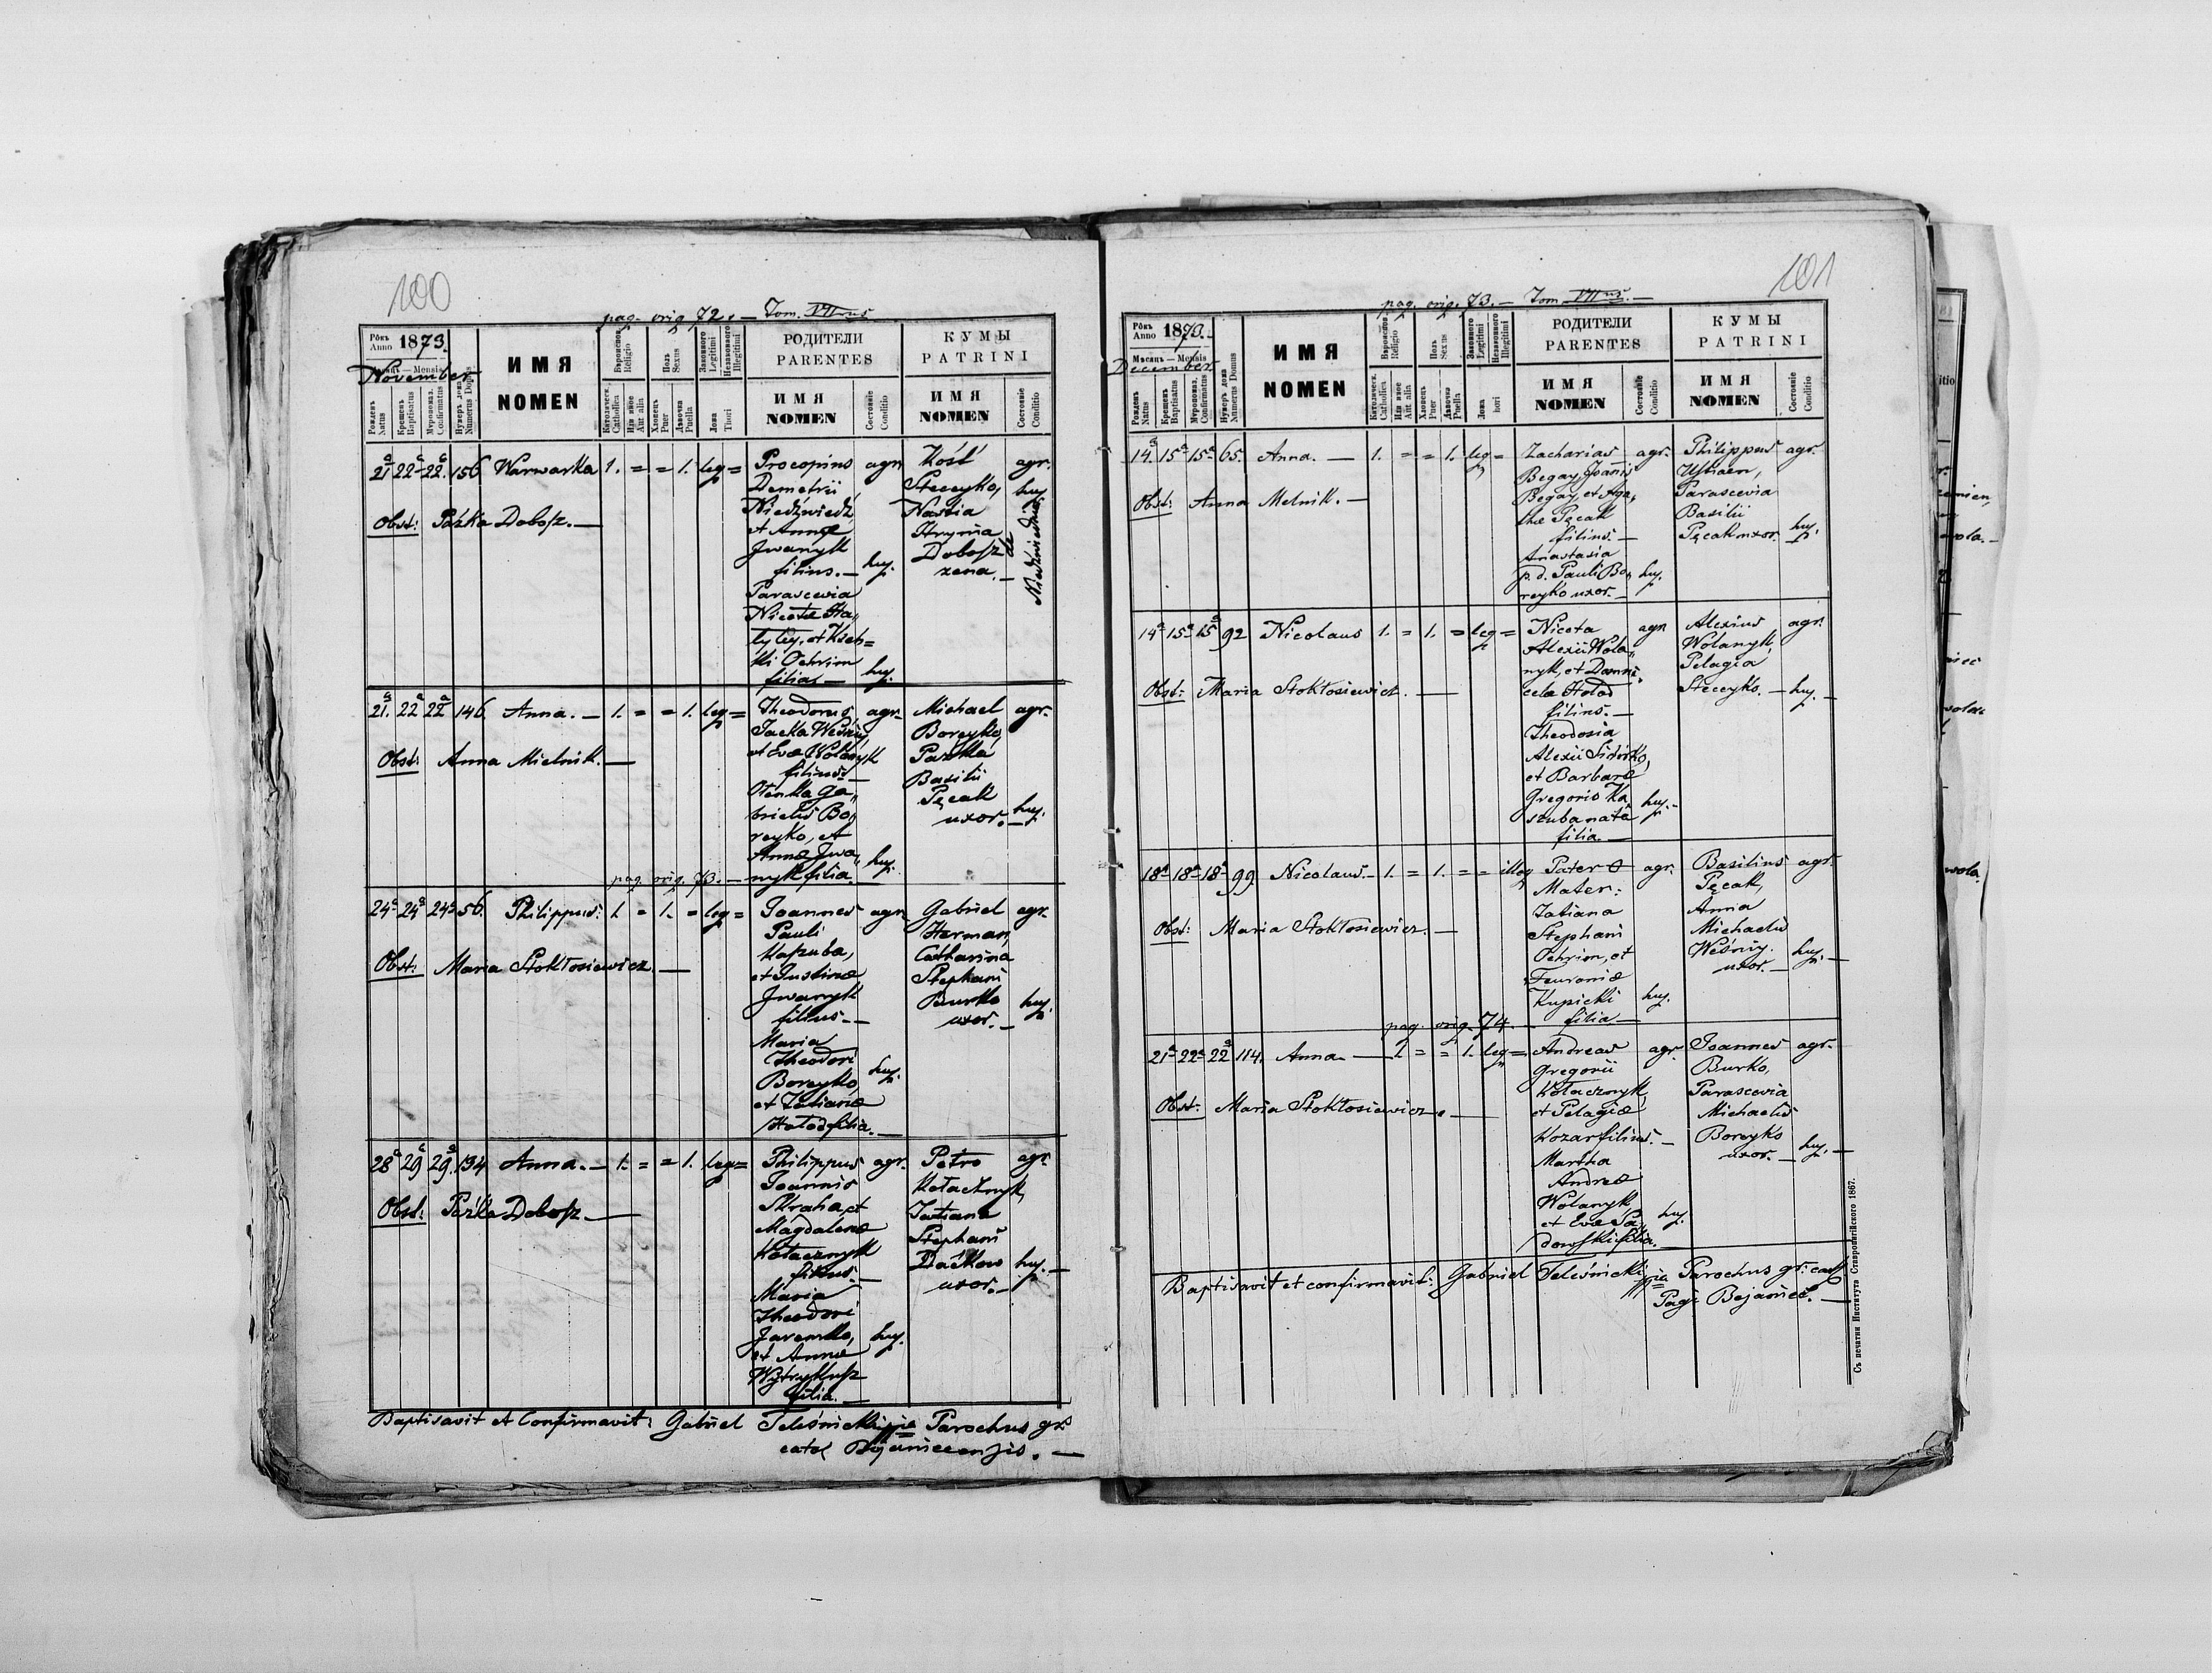 100
pag. orig. 72. — Tom. VII us
Рокъ Anno 1873.
Мѣсяць — Mensis
November
ИМЯ
NOMEN
Вѣроиспов. Religio
Полъ Sexus
Законного Legitimi
Незаконного Illegitimi
РОДИТЕЛИ
PARENTES
КУМЫ
PATRINI
Рожденъ Natus
Крещенъ Baptisatus
Мvропомаз. Confirmatus
Нумеръ дома Numerus Domus
Католическ. Catholica
Или иное Aut alia
Хлопець Puer
Дѣвочка Puella
Ложа Thori
ИМЯ
NOMEN
Состояніе Conditio
ИМЯ
NOMEN
Состояніе Conditio
21 22 22. 156 Warwarka 1. = = 1. leg =
Obst: Paźka Dobosz. —
Procopius agr.
Demetrii
Niedźwiedź,
et Annæ
Jwanyk
filius. — huj.
Parascevia
Nicetæ Ha„
lyley, et
Ochrim
filia — huj.
Kość agr.
Steceyko, huj.
Nascia
Hrynia
Dobosz
żena. —
de
21. 22 22 146 Anna. — 1. = = 1. leg =
Obst: Anna Mielnik. —
Theodorus, agr.
Jacka Weśniy,
et Evæ Wolanyk
filius —
Olenka Ga„
brielis Bo„
reyko, et
Annæ Jwa„ huj.
nyk filia. —
Michael agr.
Boreyko,
Paźka
Basilii
Pęcak
uxor. — huj.
pag. orig. 73. —
24 24 24 56. Philippus: 1. = 1. = leg =
Obst: Maria Stokłosiewicz —
Joannes agr.
Pauli
Kaszuba,
et Justinæ
Jwanyk
filius. —
Maria
Theodori
Boreyko, huj.
et Tatianæ
Hołod filia. —
Gabriel agr.
Herman,
Catharina
Stephani
Burko huj.
uxor. —
28 29 29. 134 Anna. — 1. = = 1. leg =
Obst: Paźka Dobosz —
Philippus agr.
Joannis
Skraha, et
Magdalenæ
Kołacznyk
filius. —
Maria
Theodori
Jaremko, huj.
et Annæ
Wytrykusz
filia. —
Petro agr.
Kołacznyk,
Tatiana
Stephani
Daćkow huj. —
uxor. —
Baptisavit et Confirmavit: Gabriel Teleśnicki mpia Parochus gr:
cat. Bojanicensis. —
101
pag. orig. 73. — Tom VII us. —
Рокъ Anno 1873. —
Мѣсяць — Mensis
December
ИМЯ
NOMEN
Вѣроиспов. Religio
Полъ Sexus
Законного Legitimi
Незаконного Illegitimi
РОДИТЕЛИ
PARENTES
КУМЫ
PATRINI
Рожденъ Natus
Крещенъ Baptisatus
Мvропомаз. Confirmatus
Нумеръ дома Numerus Domus
Католическ. Catholica
Или иное Aut alia
Хлопець Puer
Дѣвочка Puella
Ложа hori
ИМЯ
NOMEN
Состояніе Conditio
ИМЯ
NOMEN
Состояніе Conditio
14. 15 15 65. Anna. — 1. = = 1. leg =
Obst: Anna Melnik. —
Zacharias agr.
Begay, Joanis
Begay, et Aga„
thæ Pęcak
filius. —
Anastasia
p. d. Pauli Bo„ huj.
reyko uxor. —
Philippus agr.
Parascevia
Basilii
Pęcak uxor. — huj.
14 15 15 92 Nicolaus 1. = 1. = leg =
Obst: Maria Stokłosiewicz. —
Niceta agr.
Alexii Wola„
nyk, et Domni„
celæ Hołod
filius. —
Theodosia
Alexii Sidorko,
et Barbaræ
Gregorio Ka„ huj. —
szubanata
filia. —
Alexius agr.
Wolanyk,
Pelagia
Steceyko. — huj. —
18 18 18 99. Nicolaus. — 1. = 1. = = illeg
Obst: Maria Stokłosiewicz. —
Pater O agr.
Mater:
Tatiana
Stephani
Ochrim, et
Fewroniæ
Kupicki huj.
filia —
Basilius agr.
Pęcak,
Anna
Michaelis
Weśniy. huj. —
uxor. —
pag. orig. 74. —
21 22 22 114. Anna. — 1. = = 1. leg =
Obst: Maria Stokłosiewicz. —
Andreas agr.
Gregorii
Kołacznyk,
et Pelagiæ
Kozar filius. —
Martha
Andreæ
Wolanyk, huj.
et Evæ Sa„
dowski filia. —
Joannes agr.
Burko,
Parascevia
Michaelis
Boreyko huj. —
uxor. —
Baptisavit et confirmavit: Gabriel Teleśnicki mpia Parochus gr: cat.
Pagi Bojaniec. —
Съ печатни Института Ставропигійского 1867.